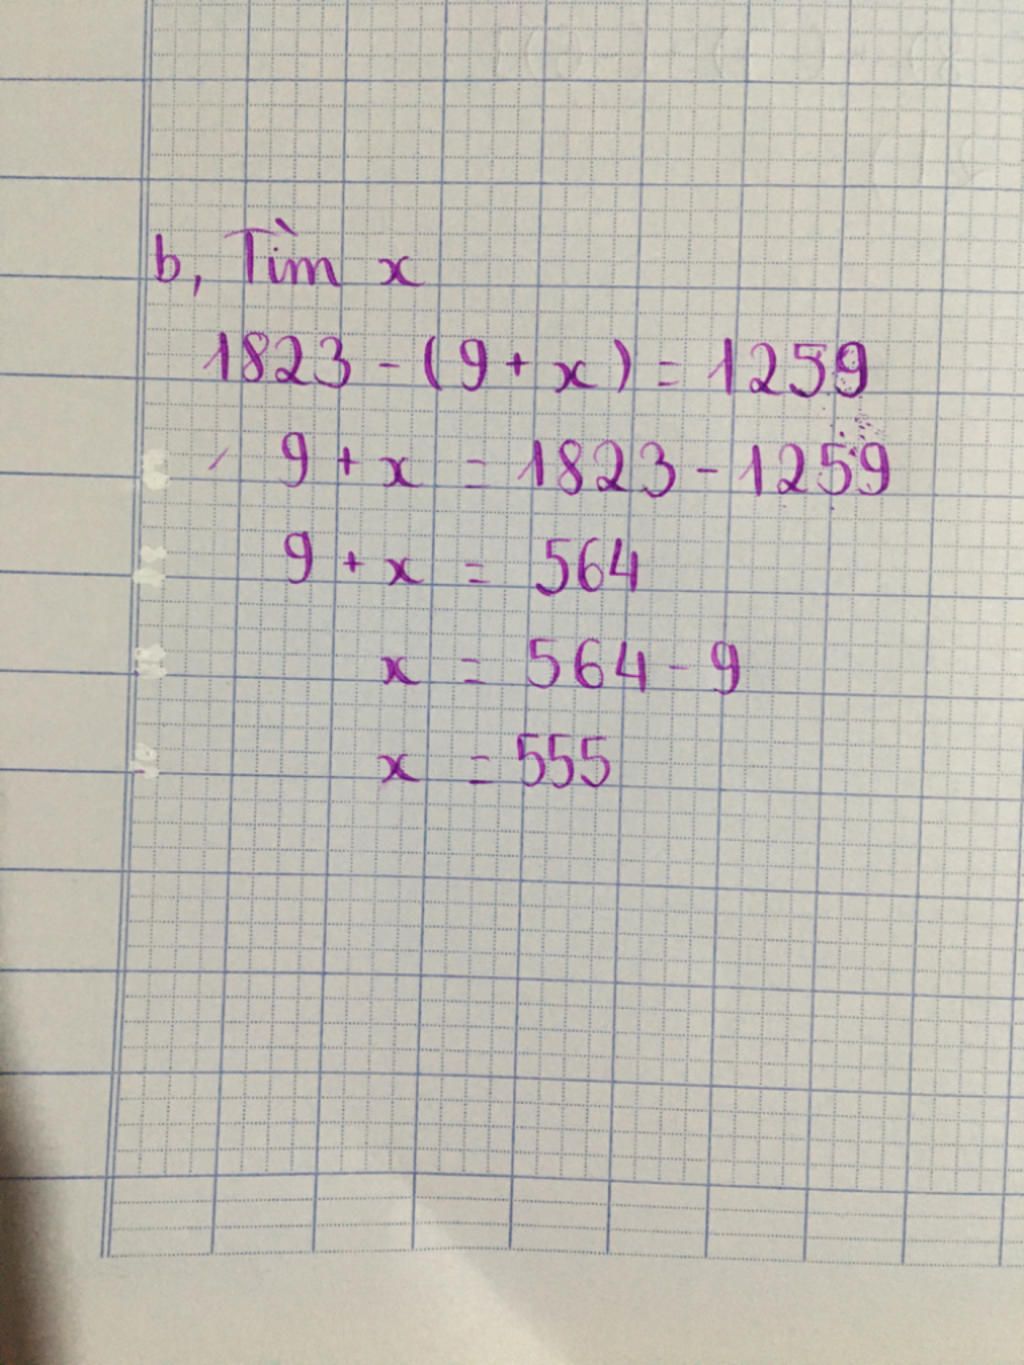 b, Tìm x
1823 - (9 + x) = 1259
9 + x = 1823 - 1259
9 + x = 564
x = 564 - 9
x = 555